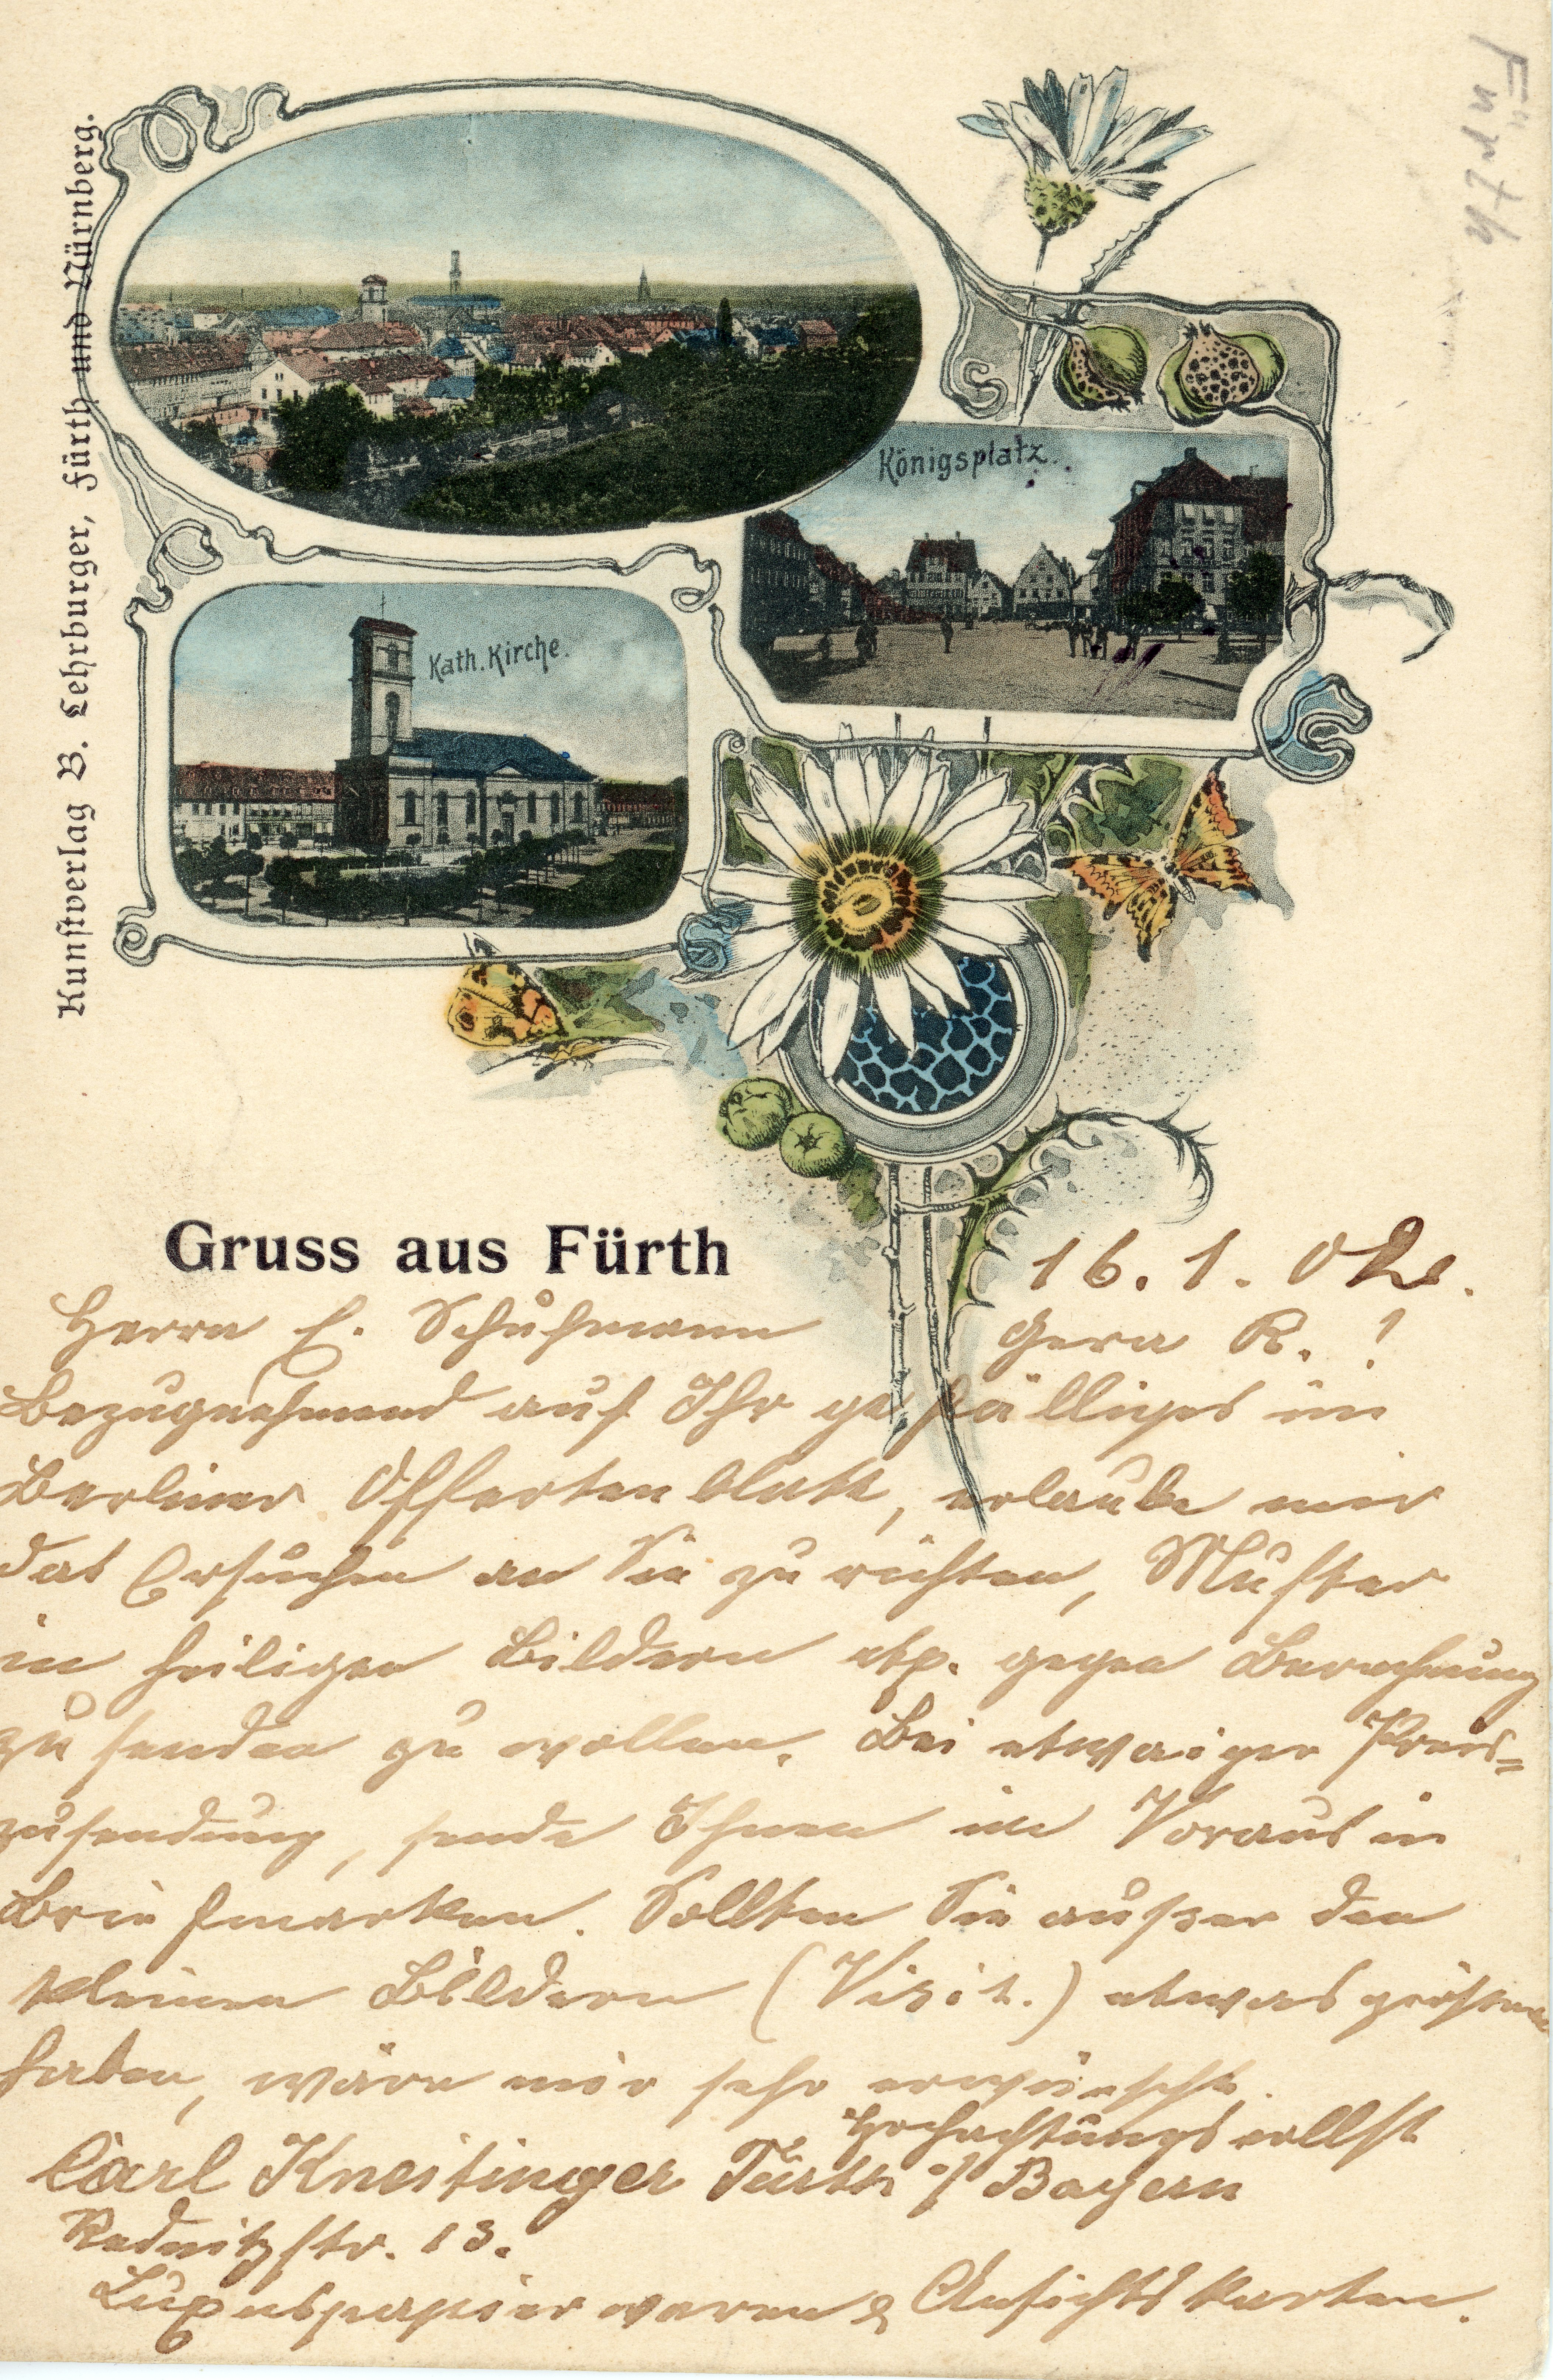 Fürth
Kunstverlag B. Lehrburger, Fürth und Nürnberg.
Königsplatz.
Kath. Kirche.
Gruss aus Fürth
16. 1. 02.
Herrn E. Schuhmann Gera R. !
Bezugnehmend auf Ihr gefälliges im
Berliner Offertenblatt, erlaube mir
das Ersuchen an Sie zu richten, Muster
in heiligen Bildern etz. gegen Berechnung
zu senden zu wollen. Bei etwaiger Preis=
zusendung, sende Ihnen im Voraus in
Briefmarken. Sollten Sie außer den
kleinen Bildern (Visit.) etwas größere
haben, wäre mir sehr erwünscht.
Hochachtungsvollst
Carl Kneitinger Fürth i/ Bayern
Rednitzstr. 13.
Luxuspapierwaren & Ansichtskarten.